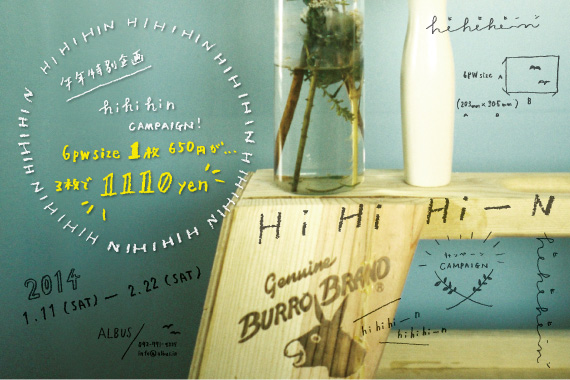 HIHIHIN HIHIHIN HIHIHIN HIHIHIN HIHIHIN HIHIHIN
午年特別企画
hihihin
CAMPAIGN!
6pw size 1枚 650円が...
3枚で 1110 yen
2014
1.11 (SAT) — 2.22 (SAT)
ALBUS
info@albus.in
hihihein
6PW size
A
B
(203mm×305mm)
A B
Hi Hi Hi—N
キャンペーン
CAMPAIGN
Genuine
BURRO BRAND
®
hihihi—n
hihihi—n
hihihein